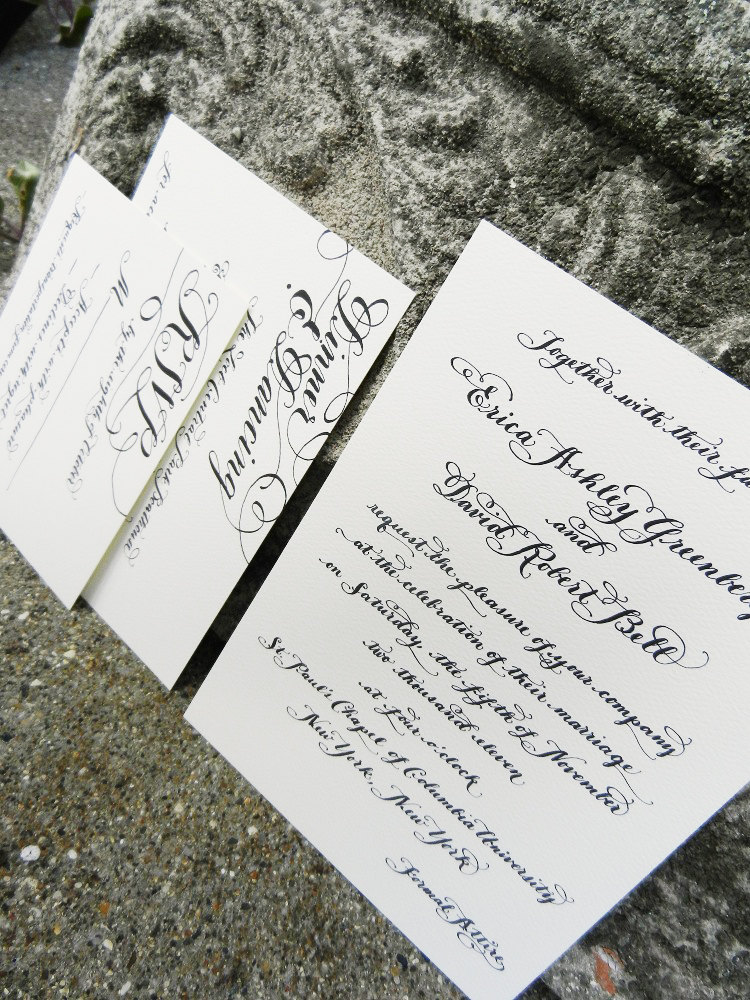 Together with their
Erica Ashley Greenberg
and
David Robert Bell
request the pleasure of your company
at the celebration of their marriage
on Saturday, the fifth of November
two thousand eleven
at four o'clock
St. Paul's Chapel of Columbia University
New York, New York
Formal Attire
Dinner
&
Dancing
The
Central Park Boathouse
RSVP
by the
of October
M
Accepts with pleasure
Declines with regret